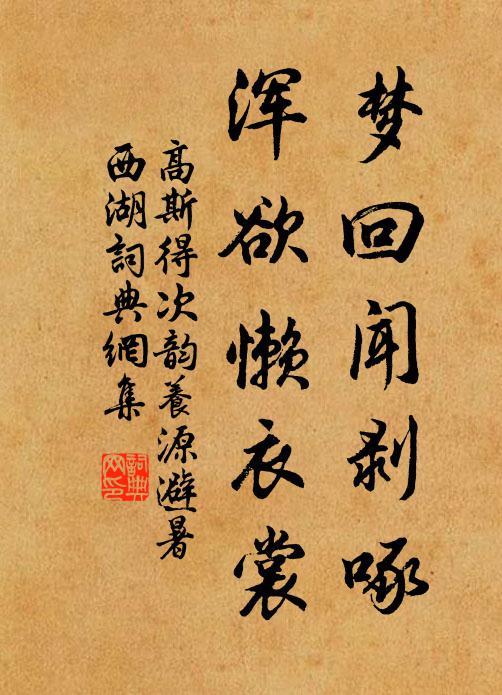 梦回闻剥啄
浑欲懒衣裳
高斯得次韵養源避暑
西湖詞典網集
詞典
网印